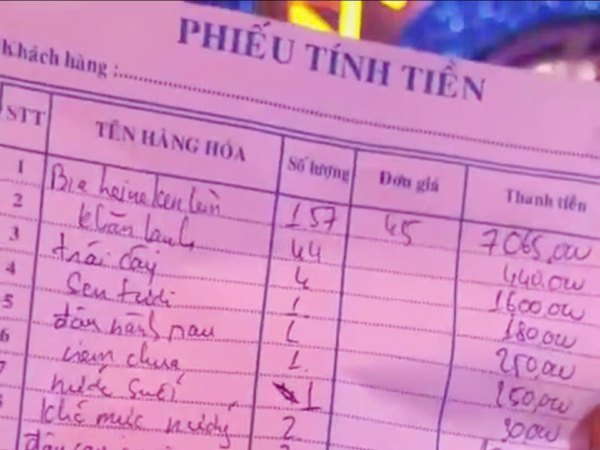 PHIẾU TÍNH TIỀN
Khách hàng :
STT TÊN HÀNG HÓA Số lượng Đơn giá Thanh tiền
1 Bia heineken lùn 157 45 7065,000
2 khăn lạnh 44 440.000
3 trái cây 4 1600.000
4 Sen tươi 1 180.000
5 đậu hành nau 1 250,000
6 nem chua 1. 150,000
7 nước suối 1 30,000
8 khô mực nướng 2